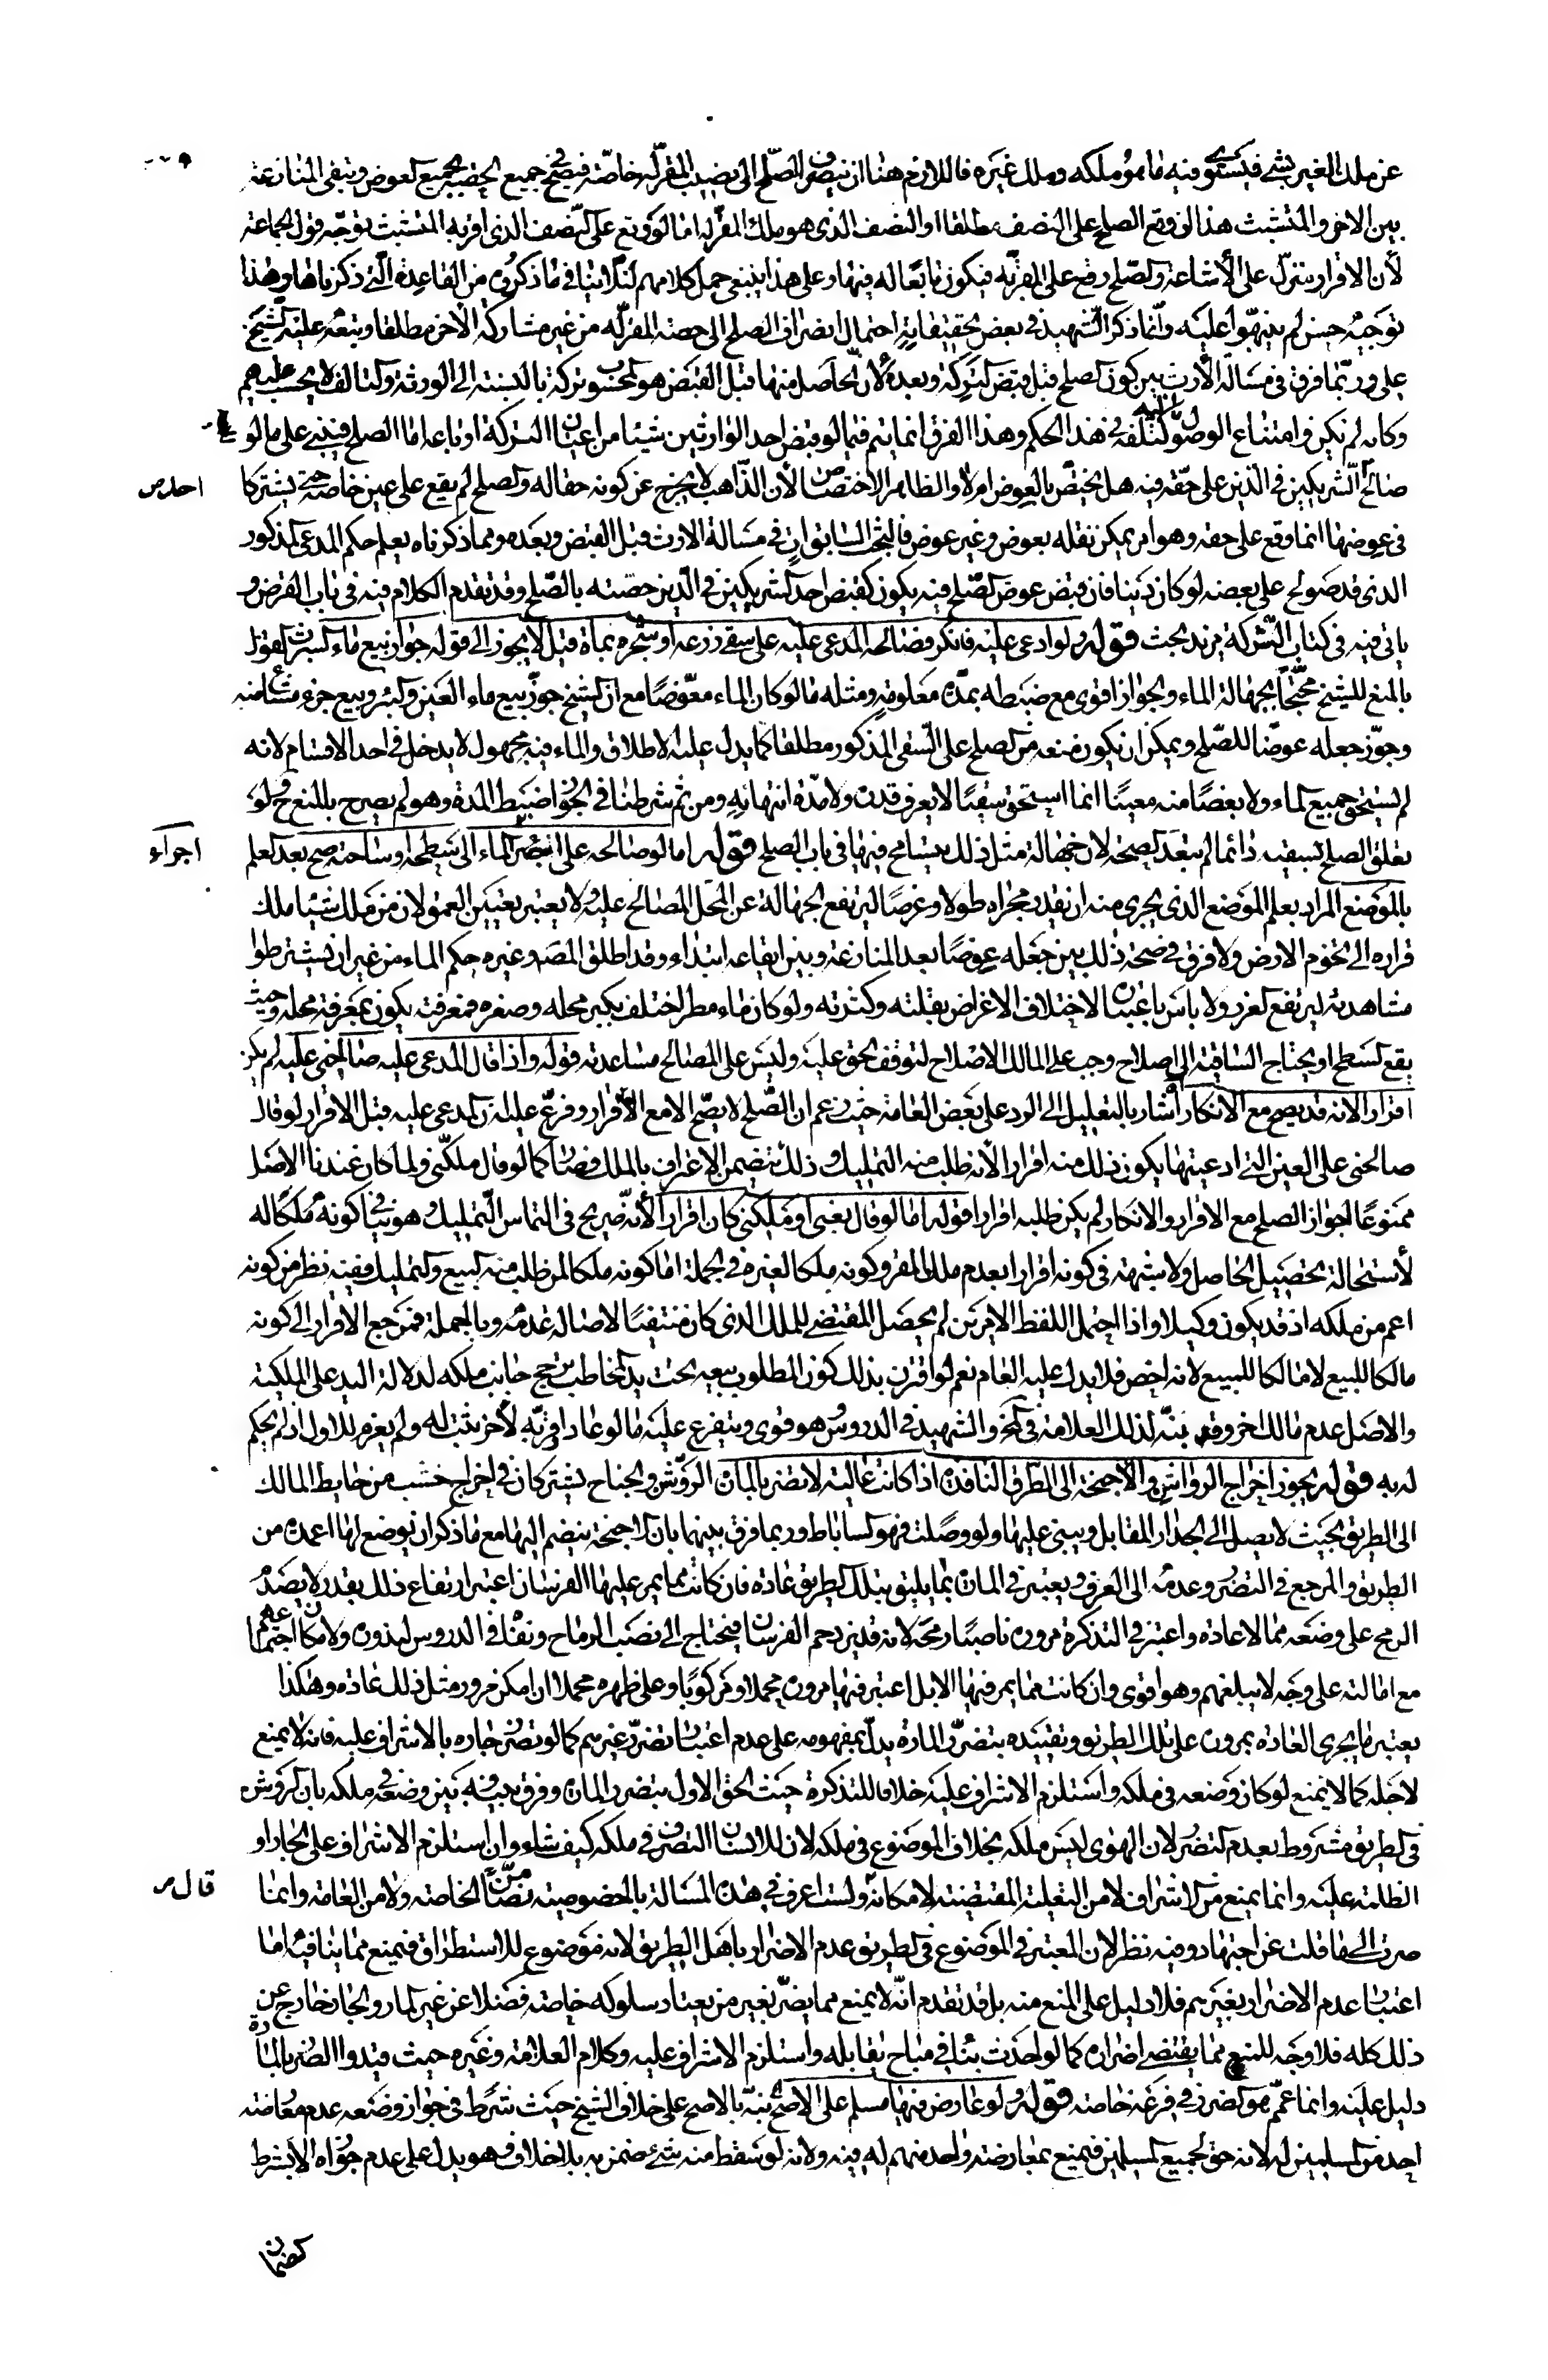 عن ملك الغير بشئ فيستوى فيه ما هو ملكه وملك غيره فاللازم هنا ان ينصرف الصلح الى نصيب المقر له خاصة فيصح في جميع الحصة بجميع العوض وتبقى المنازعة
بين الاخر والمتشبث هذا لو وقع الصلح على النصف مطلقا او النصف الذى هو ملك المقر له اما لو وقع على النصف الذى اقر به المتشبث توجه قول الجماعة
لأن الاقرار منزل على الأشاعة والصلح وقع على المقر به فيكون تابعا له فيها وعلى هذا ينبغى حمل كلامهم لئلا ينافى ما ذكروه من القاعدة التى ذكرناها وهذا
توجيه حسن لم ينبهوا عليه وانما ذكر الشهيد فى بعض تحقيقاته احتمال انصراف الصلح الى حصة المقر له من غير مشاركة الأخر مطلقا وتبعه عليه الشيخ
على وربما فرق فى مسألة الأرث بين كون الصلح قبل قبض التركة وبعده لأن الحاصل منها قبل القبض هو المحسوب تركة بالنسبة الى الورثة والتالف لا يحسب عليهم
وكانه لم يكن وامتناع الوصول اليه كتلفه فى هذا الحكم وهذا الفرق انما يتم فيما لو قبض احد الوارثين شيئا من اعيان التركة او باعه اما الصلح فيبنى على ما لو
صالح احد الشريكين فى الدين على حقه فيه هل يختص بالعوض ام لا والظاهر الاختصاص لأن الذاهب لا يخرج عن كونه حقا له والصلح لم يقع على عين خاصة حتى يشتركا
احد ص
فى عوضها انما وقع على حقه وهو امر يمكن نقله بعوض وغير عوض فالبحث السابق ات فى مسألة الارث قبل القبض وبعده ومما ذكرناه يعلم حكم المدعى المذكور
الذى قد صولح على بعضه لو كان دينا فان قبض عوض الصلح فيه يكون كقبض احد الشريكين فى الدين حصته بالصلح وقد تقدم الكلام فيه فى باب القرض و
ياتى فيه فى كتاب الشركة مزيد بحث قوله ولو ادعى عليه فانكر فصالحه المدعى عليه على سقى زرعه او شجره بمائه قيل لا يجوز الى قوله جواز بيع ماء الشرب القول
بالمنع للشيخ محتجا بجهالة الماء والجواز اقوى مع ضبطه بمدة معلومة ومثله ما لو كان الماء معوضا مع ان الشيخ جوز بيع ماء العين والبئر وبيع جزء مشاع منه
وجوز جعله عوضا للصلح ويمكن ان يكون منعه من الصلح على السقى المذكور مطلقا كما يدل عليه الاطلاق والماء فيه مجهول لا يدخل فى احد الاقسام لانه
لم يستحق جميع الماء ولا بعضا منه معينا انما استحق سقيا لا يعرف قدره ولا مدة انتهائه ومن ثم شرطنا فى الجواز ضبط المدة وهو لم يصرح بالمنع ح ولو
تعلق الصلح بسقيه دائما لم يبعد الصحة لان جهالة مثل ذلك يتسامح فيها فى باب الصلح قوله اما لو صالحه على اجراء الماء الى سطحه او ساحته صح بعد العلم
اجراء
بالموضع المراد بعلم الموضع الذى يجرى منه ان يقدر مجراه طولا وعرضا ليرتفع الجهالة عن المحل المصالح عليه ولا يعتبر تعيين العمق لان من ملك شيئا ملك
قراره الى تخوم الارض ولا فرق فى صحة ذلك بين جعله عوضا بعد المنازعة وبين ايقاعه ابتداء وقد اطلق المصه وغيره حكم الماء من غير ان يشترطوا
مشاهدته ليرتفع الغرر ولا باس باعتباره لاختلاف الاغراض بقلته وكثرته ولو كان ماء مطر اختلف بكبر محله وصغره فمعرفته يكون بمعرفة محله وحيث
يقع السطح او يحتاج الساقية الى اصلاح وجب على المالك الاصلاح لتوقف الحق عليه وليس على المصالح مساعدته قوله واذا قال المدعى عليه صالحنى عليه لم يكن
اقرارا لانه قد يصح مع الانكار اشار بالتعليل الى الرد على بعض العامة حيث زعم ان الصلح لا يصح الا مع الاقرار وفرع عليه ان المدعى عليه قبل الاقرار لو قال
صالحنى على العين التى ادعيتها يكون ذلك منه اقرارا لأنه طلب منه التمليك وذلك يتضمن الاعتراف بالملك فصار كما لو قال ملكنى ولما كان عندنا الأصل
ممنوعا لجواز الصلح مع الاقرار والانكار لم يكن طلبه اقرارا قوله اما لو قال بعنى او ملكنى كان اقرارا لأنه صريح فى التماس التمليك وهو ينافى كونه ملكا له
لأستحالة تحصيل الحاصل ولا شبهة فى كونه اقرارا بعدم ملك المقر وكونه ملكا لغيره فى الجملة اما كونه ملكا لمن طلب منه البيع والتمليك ففيه نظر من كونه
اعم من ملكه اذ قد يكون وكيلا واذا احتمل اللفظ الامرين لم يحصل المقتضى للملك الذى كان منتفيا لاصالة عدمه وبالجملة فمرجع الاقرار الى كونه
مالكا للبيع لا مالكا للمبيع لانه اخص فلا يدل عليه العام نعم لو اقترن بذلك كون المطلوب بيعه تحت يد المخاطب ترجح جانب ملكه لدلالة اليد على الملكية
والاصل عدم مالك اخر وقد نبه لذلك العلامة فى التحرير والشهيد فى الدروس وهو قوى ويتفرع عليه ما لو عاد اقر به لأخر يثبت له ولم يغرم للاول اذ لم يحكم
له به قوله يجوز اخراج الرواشن والاجنحة الى الطرق النافذة اذا كانت عالية لا تضر بالمارة الروشن والجناح يشتركان فى اخراج خشب من حايط المالك
الى الطريق بحيث لا يصل الى الجدار المقابل ويبنى عليها ولو وصلت فهو الساباط وربما فرق بينهما بان الاجنحة ينضم اليها مع ما ذكر ان يوضع لها اعمدة من
الطريق والمرجع فى التضرر وعدمه الى العرف ويعتبر فى المارة بما يليق بتلك الطريق عادة فان كانت مما يمر عليها الفرسان اعتبر ارتفاع ذلك بقدر لا يصدم
الرمح على وضعه مما لا عادة واعتبر فى التذكرة مروره ناصبا رمحه لانه قد يزدحم الفرسان فيحتاج الى نصب الرماح ونفاه فى الدروس لندوره ولامكان اجتماعهم
مع امالته على وجه لا يبلغهم وهو اقوى وان كانت مما يمر فيها الابل اعتبر فيها مروره محملا او مركوبا وعلى ظهره محمل ان امكن مرور مثل ذلك عادة وهكذا
يعتبر ما يجرى العادة بمروره على تلك الطريق وتقييده بتضرر المارة يدل بمفهومه على عدم اعتبار تضرر غيرهم كما لو تضرر جاره بالاشراف عليه فانه لا يمنع
لاجله كما لا يمنع لو كان وضعه فى ملكه واستلزم الاشراف عليه خلافا للتذكرة حيث الحق الاول بتضرر المارة وفرق بينه وبين وضعه فى ملكه بان الروشن
فى الطريق مشروط بعدم التضرر لان الهوى ليس ملكه بخلاف الموضوع فى ملكه لان للانسان التصرف فى ملكه كيف شاء وان استلزم الاشراف على الجار او
الظلمة عليه وانما يمنع من الاشراف لا من التعلية المقتضية لامكانه قال ولست اعرف فى هذه المسألة بالخصوصية نصا من الخاصة ولا من العامة وانما
قال ص
صرت الى ما قلت عن اجتهاد وفيه نظر لان المعتبر فى الموضوع فى الطريق عدم الاضرار باهل الطريق لانه موضوع للاستطراق فيمنع مما ينافيه اما
اعتبار عدم الاضرار بغيرهم فلا دليل على المنع منه بل قد تقدم انه لا يمنع مما يضر بغير من يعتاد سلوكه خاصة فضلا عن غير المار والجار خارج عن
ذلك كله فلا وجه للمنع مما يقتضى اضراره كما لو احدث بناء فى مباح يقابله واستلزم الاشراف عليه وكلام العلامة وغيره حيث قيدوا الضرر بالمارة
دليل عليه وانما عمم هو الضرر فى فرعه خاصة قوله ولو عارض فيها مسلم على الاصح نبه بالاصح على خلاف الشيخ حيث شرط فى جواز وضعه عدم معارضة
احد من المسلمين له لانه حق لجميع المسلمين فيمنع بمعارضة واحد منهم له فيه ولانه لو سقط منه شئ ضمن به بلا خلاف وهو يدل على عدم جوازه الا بشرط
كضمان